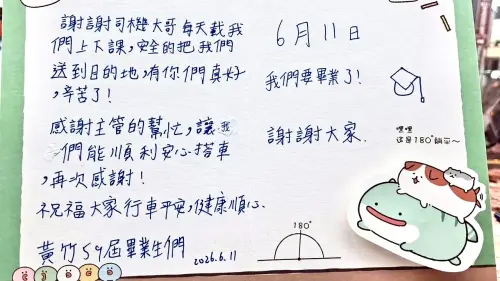 謝謝司機大哥每天載我
們上下課,安全的把我們
送到目的地,有你們真好
,辛苦了!
感謝主管的幫忙,讓我
們能順利安心搭車
,再次感謝!
祝福大家行車平安,健康順心.
黃竹59屆畢業生們
2026.6.11
6月11日
我們要畢業了!
謝謝大家.
嘿嘿
這是180°躺平~
180°